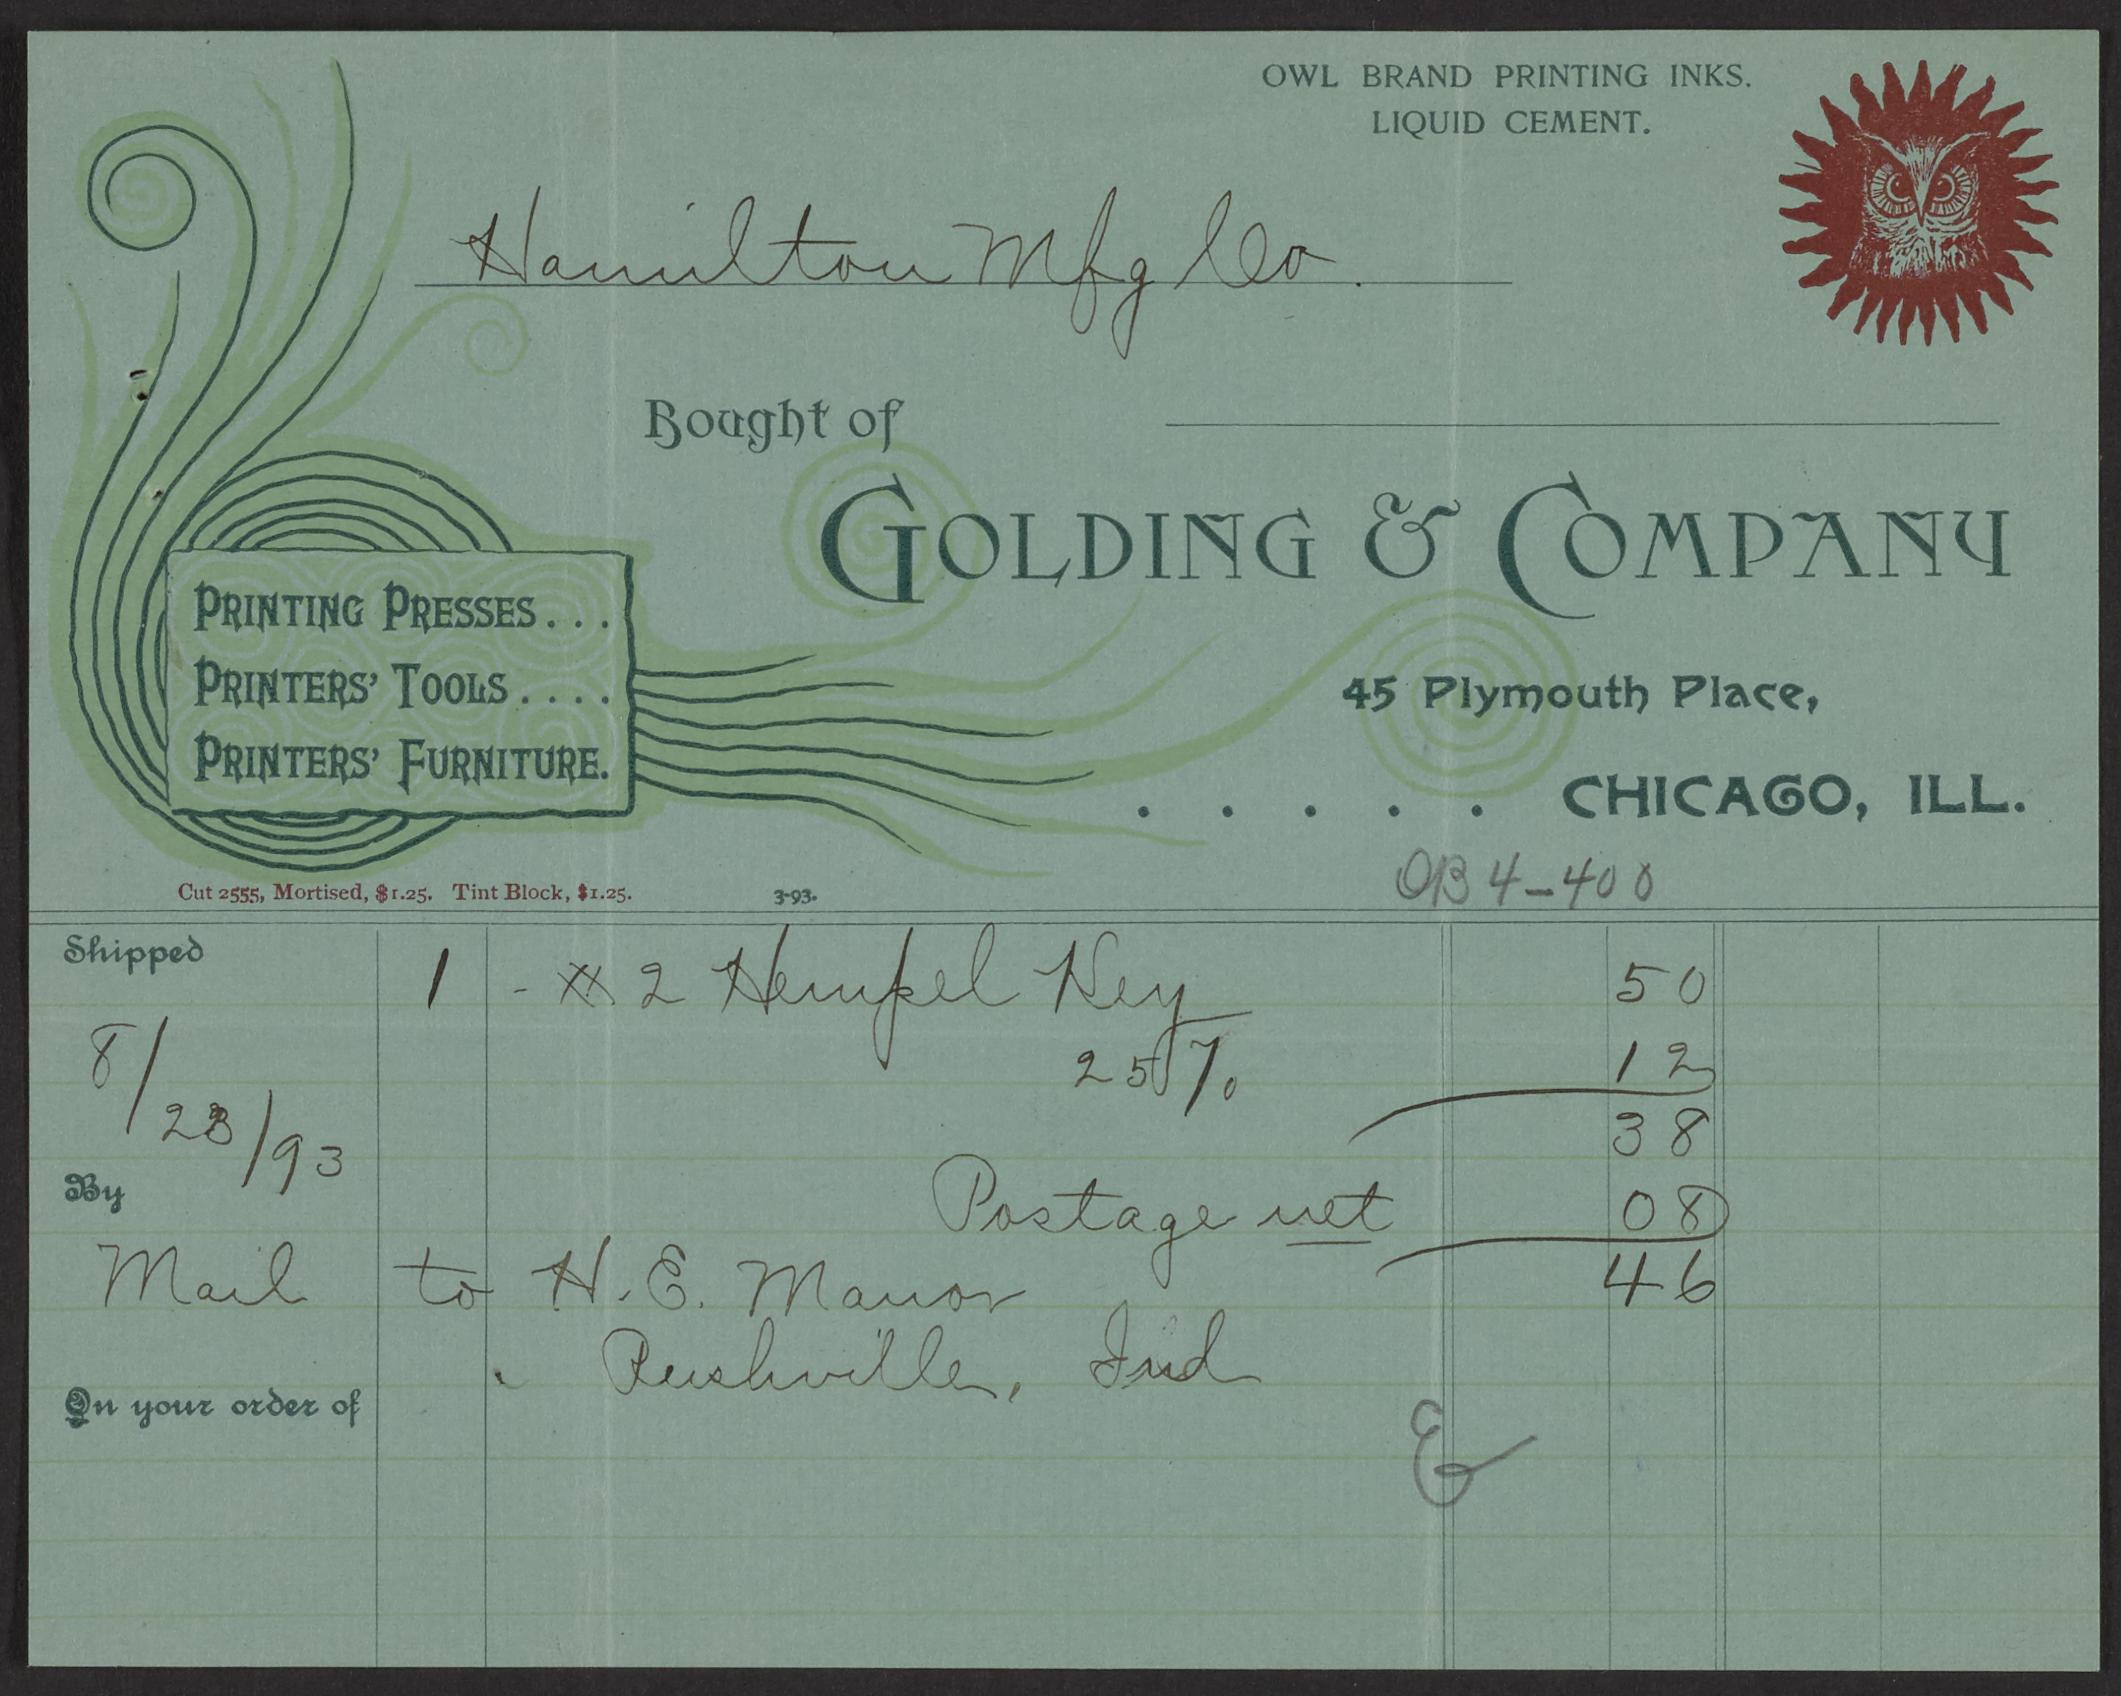 OWL BRAND PRINTING INKS.
LIQUID CEMENT.
Hamilton Mfg Co.
Bought of
GOLDING & COMPANY
PRINTING PRESSES...
PRINTERS' TOOLS....
PRINTERS' FURNITURE.
45 Plymouth Place,
..... CHICAGO, ILL.
OB 4-400
Cut 2555, Mortised, $1.25. Tint Block, $1.25. 3-93.
Shipped 1 - # 2 Hempel Key 50
25% 12
8/23/93 38
By Postage net 08
Mail to H. E. Manor 46
Rushville, Ind
On your order of